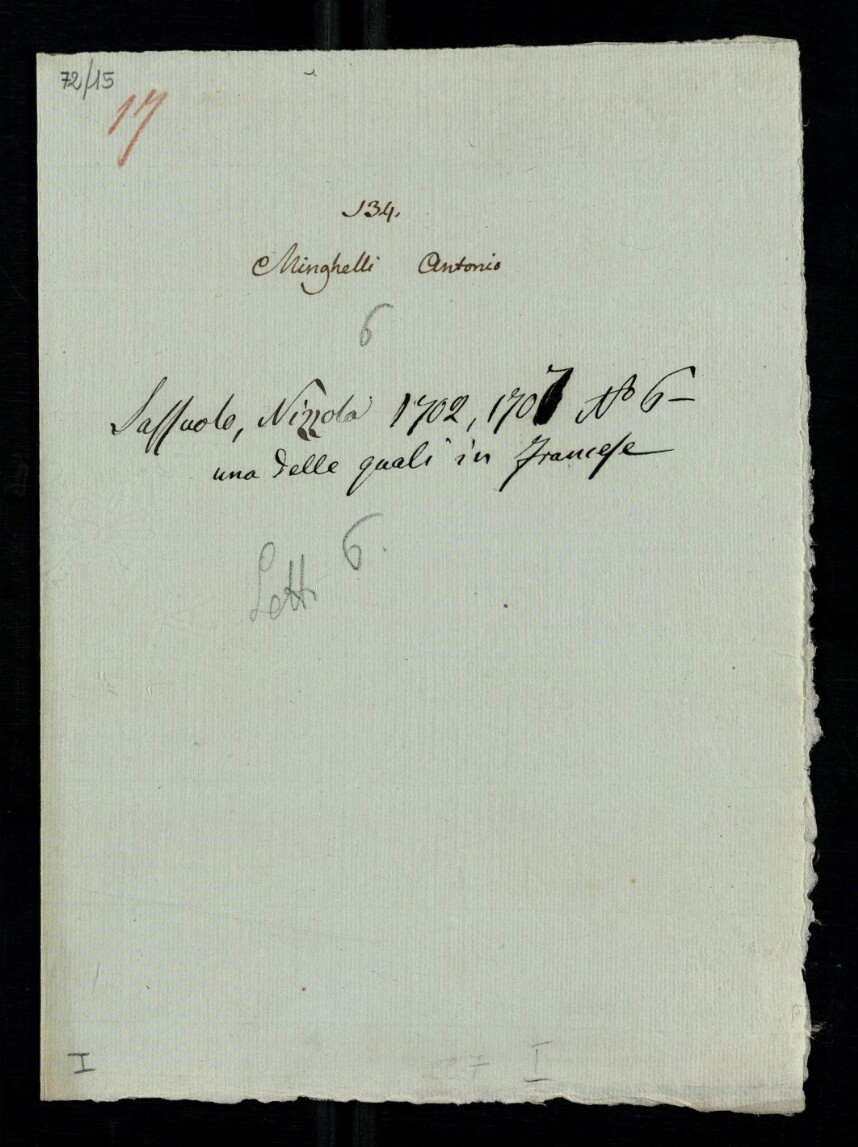 72/15
17
134.
Minghelli Antonio
6
Sassuolo, Nizzola 1702, 1707 N.º 6-
una delle quali in Francese
6.
Lett
I
I